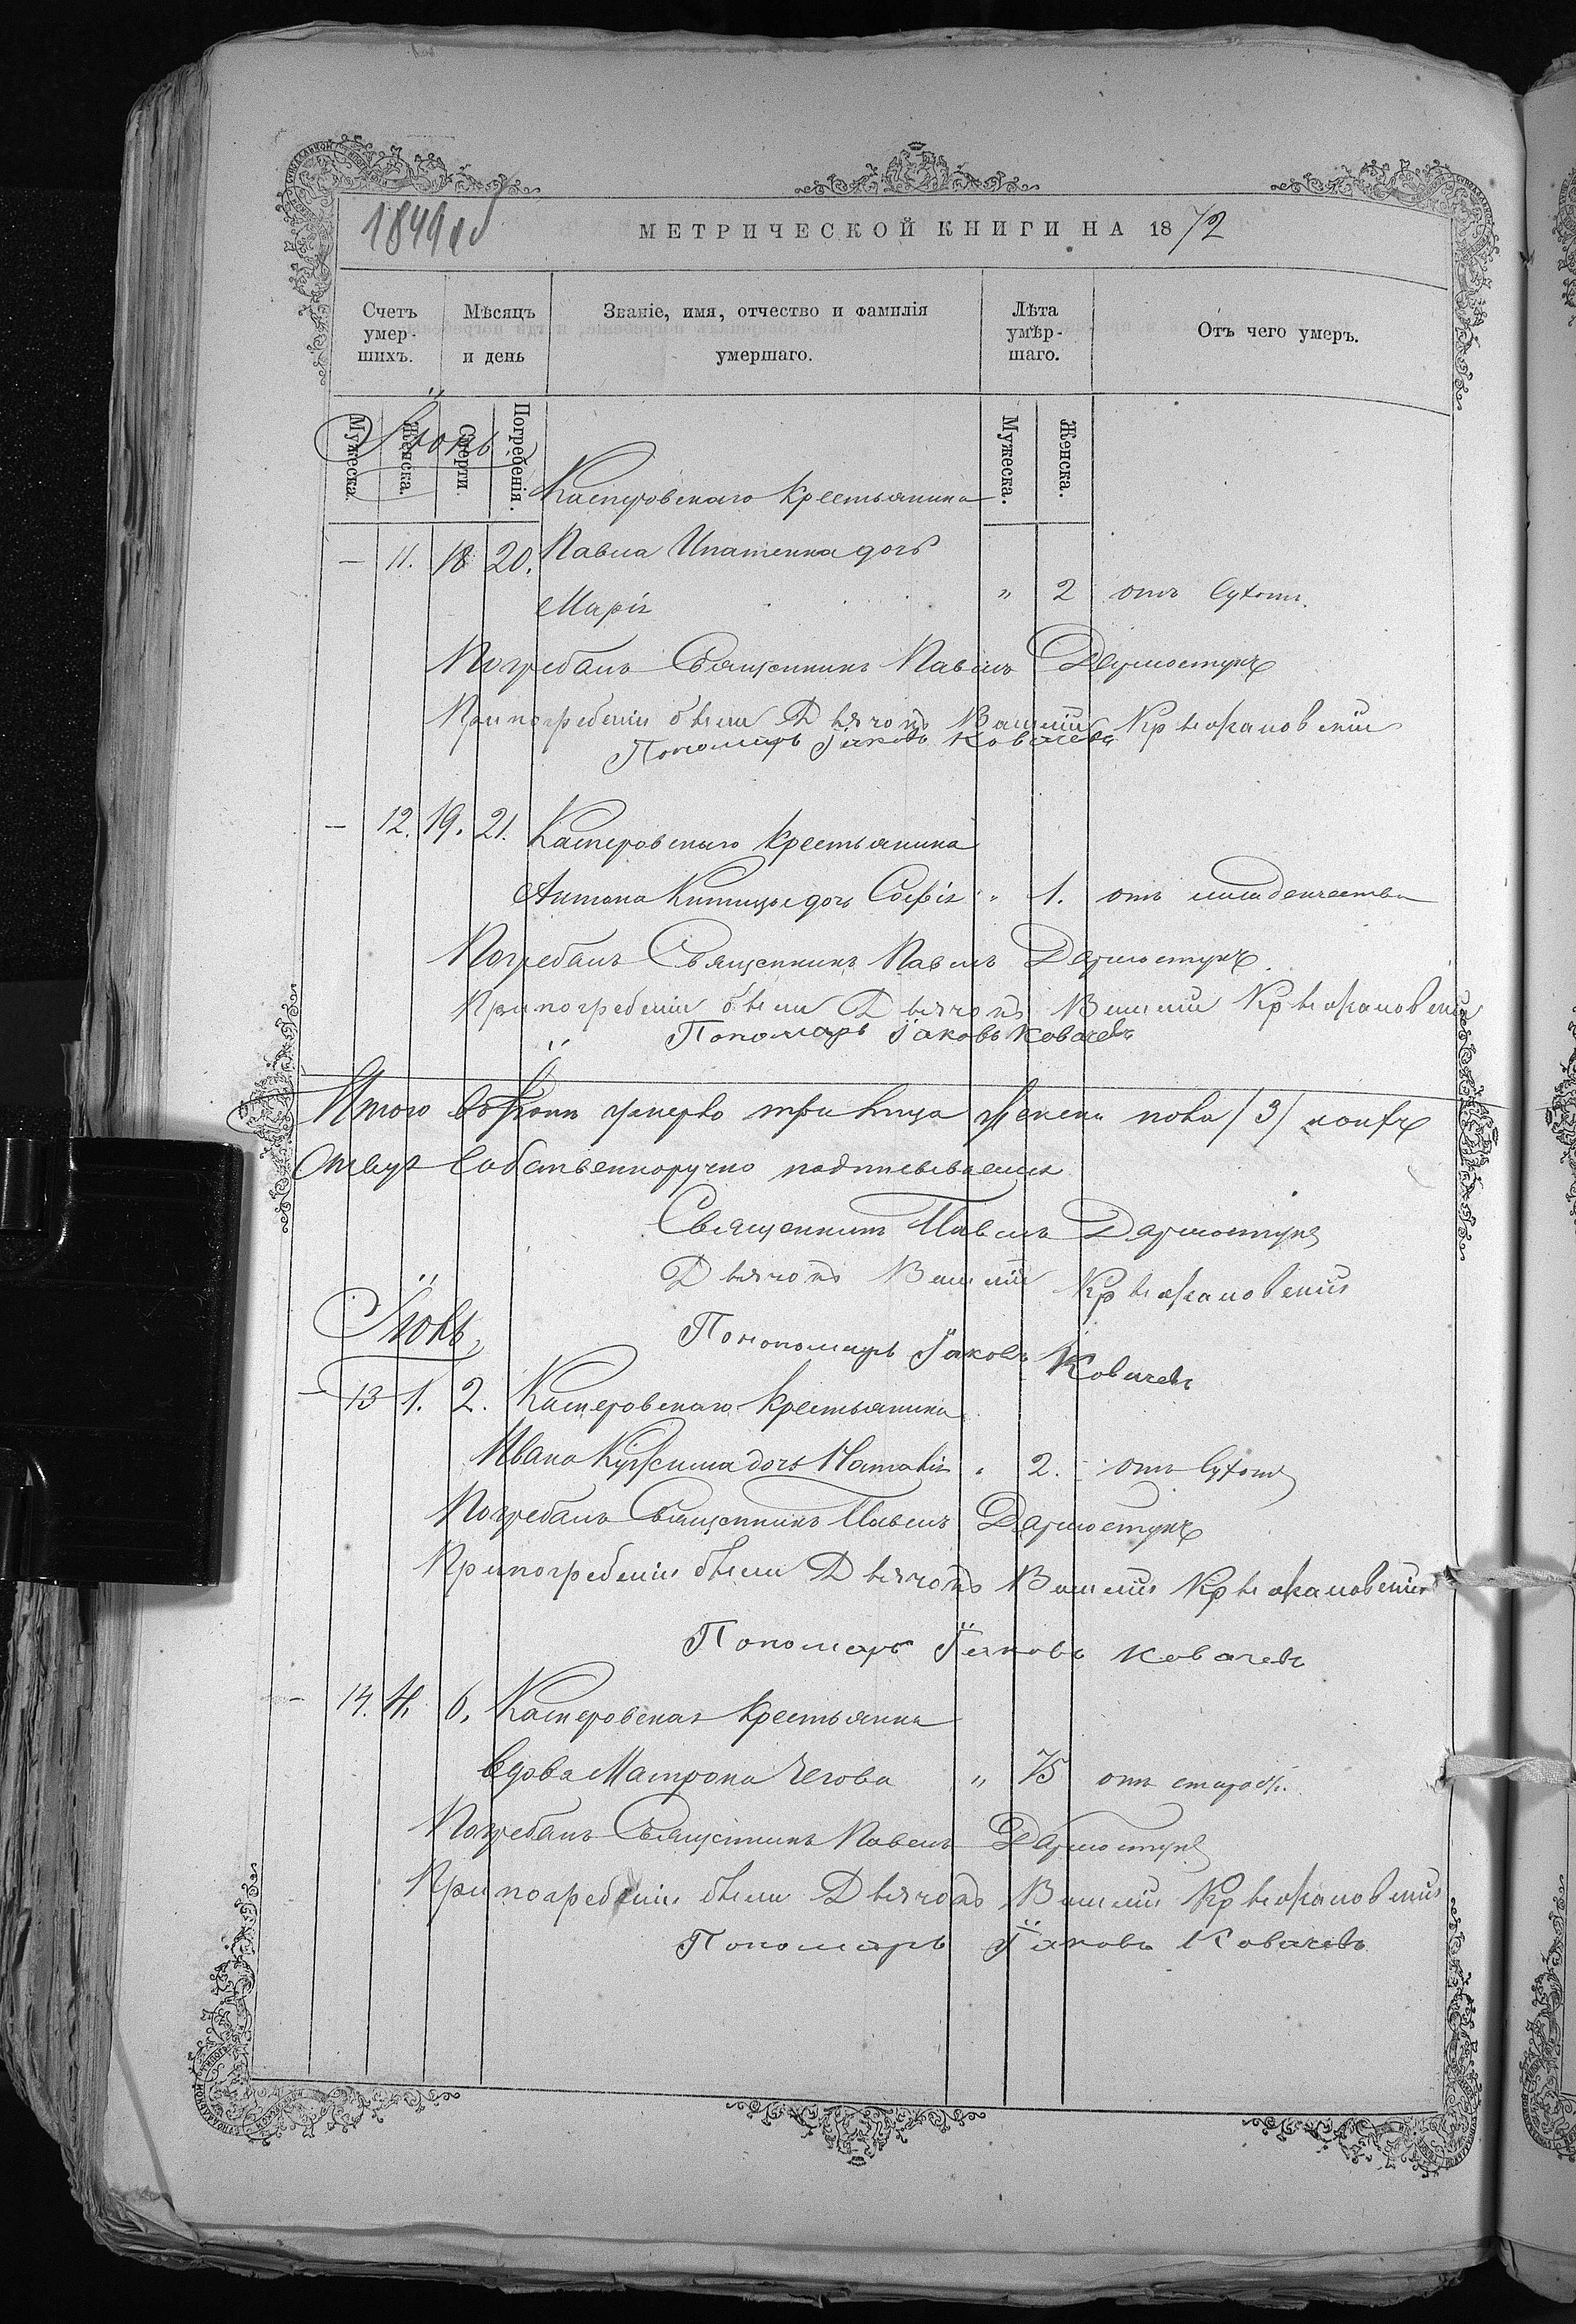 1849 об
МЕТРИЧЕСКОЙ КНИГИ НА 1872
Счетъ умер-шихъ.
Мѣсяцъ и день
Званіе, имя, отчество и фамилія умершаго.
Лѣта умѣр-шаго.
Отъ чего умеръ.
Мужеска. Женска. Смерти. Погребенія. Мужеска. Женска.
Іюнь
Касперовскаго крестьянина
— 11. 18 20. Павла Ипатенка дочь
Марія " 2 отъ сухот.
Погребалъ Священникъ Павелъ
При погребеніи были Дьячокъ Василій Крыжановскій
Пономарь Іаковъ Ковачевъ
— 12. 19. 21. Касперовскаго крестьянина
Антона дочь Софія " 1. отъ младенчества
Погребалъ Священникъ Павелъ
При погребеніи были Дьячокъ Василій Крыжановскій
Пономарь Іаковъ Ковачевъ
Итого въ Іюнѣ умерло три лица женска пола /3/
собственноручно подписываемся
Священникъ Павелъ
Дьячокъ Василій Крыжановскій
Іюль
Іаковъ Ковачевъ
— 13 1. 2. Касперовскаго крестьянина
Ивана дочь Наталія " 2. отъ сухот
Погребалъ Священникъ Павелъ
При погребеніи были Дьячокъ Василій Крыжановскій
Пономарь Іаковъ Ковачевъ
— 14. 4. 6. Касперовская крестьянка
вдова Матрона Чегова " 75 отъ старост.
Погребалъ Священникъ Павелъ
При погребеніи были Дьячокъ Василій Крыжановскій
Пономарь Іаковъ Ковачевъ